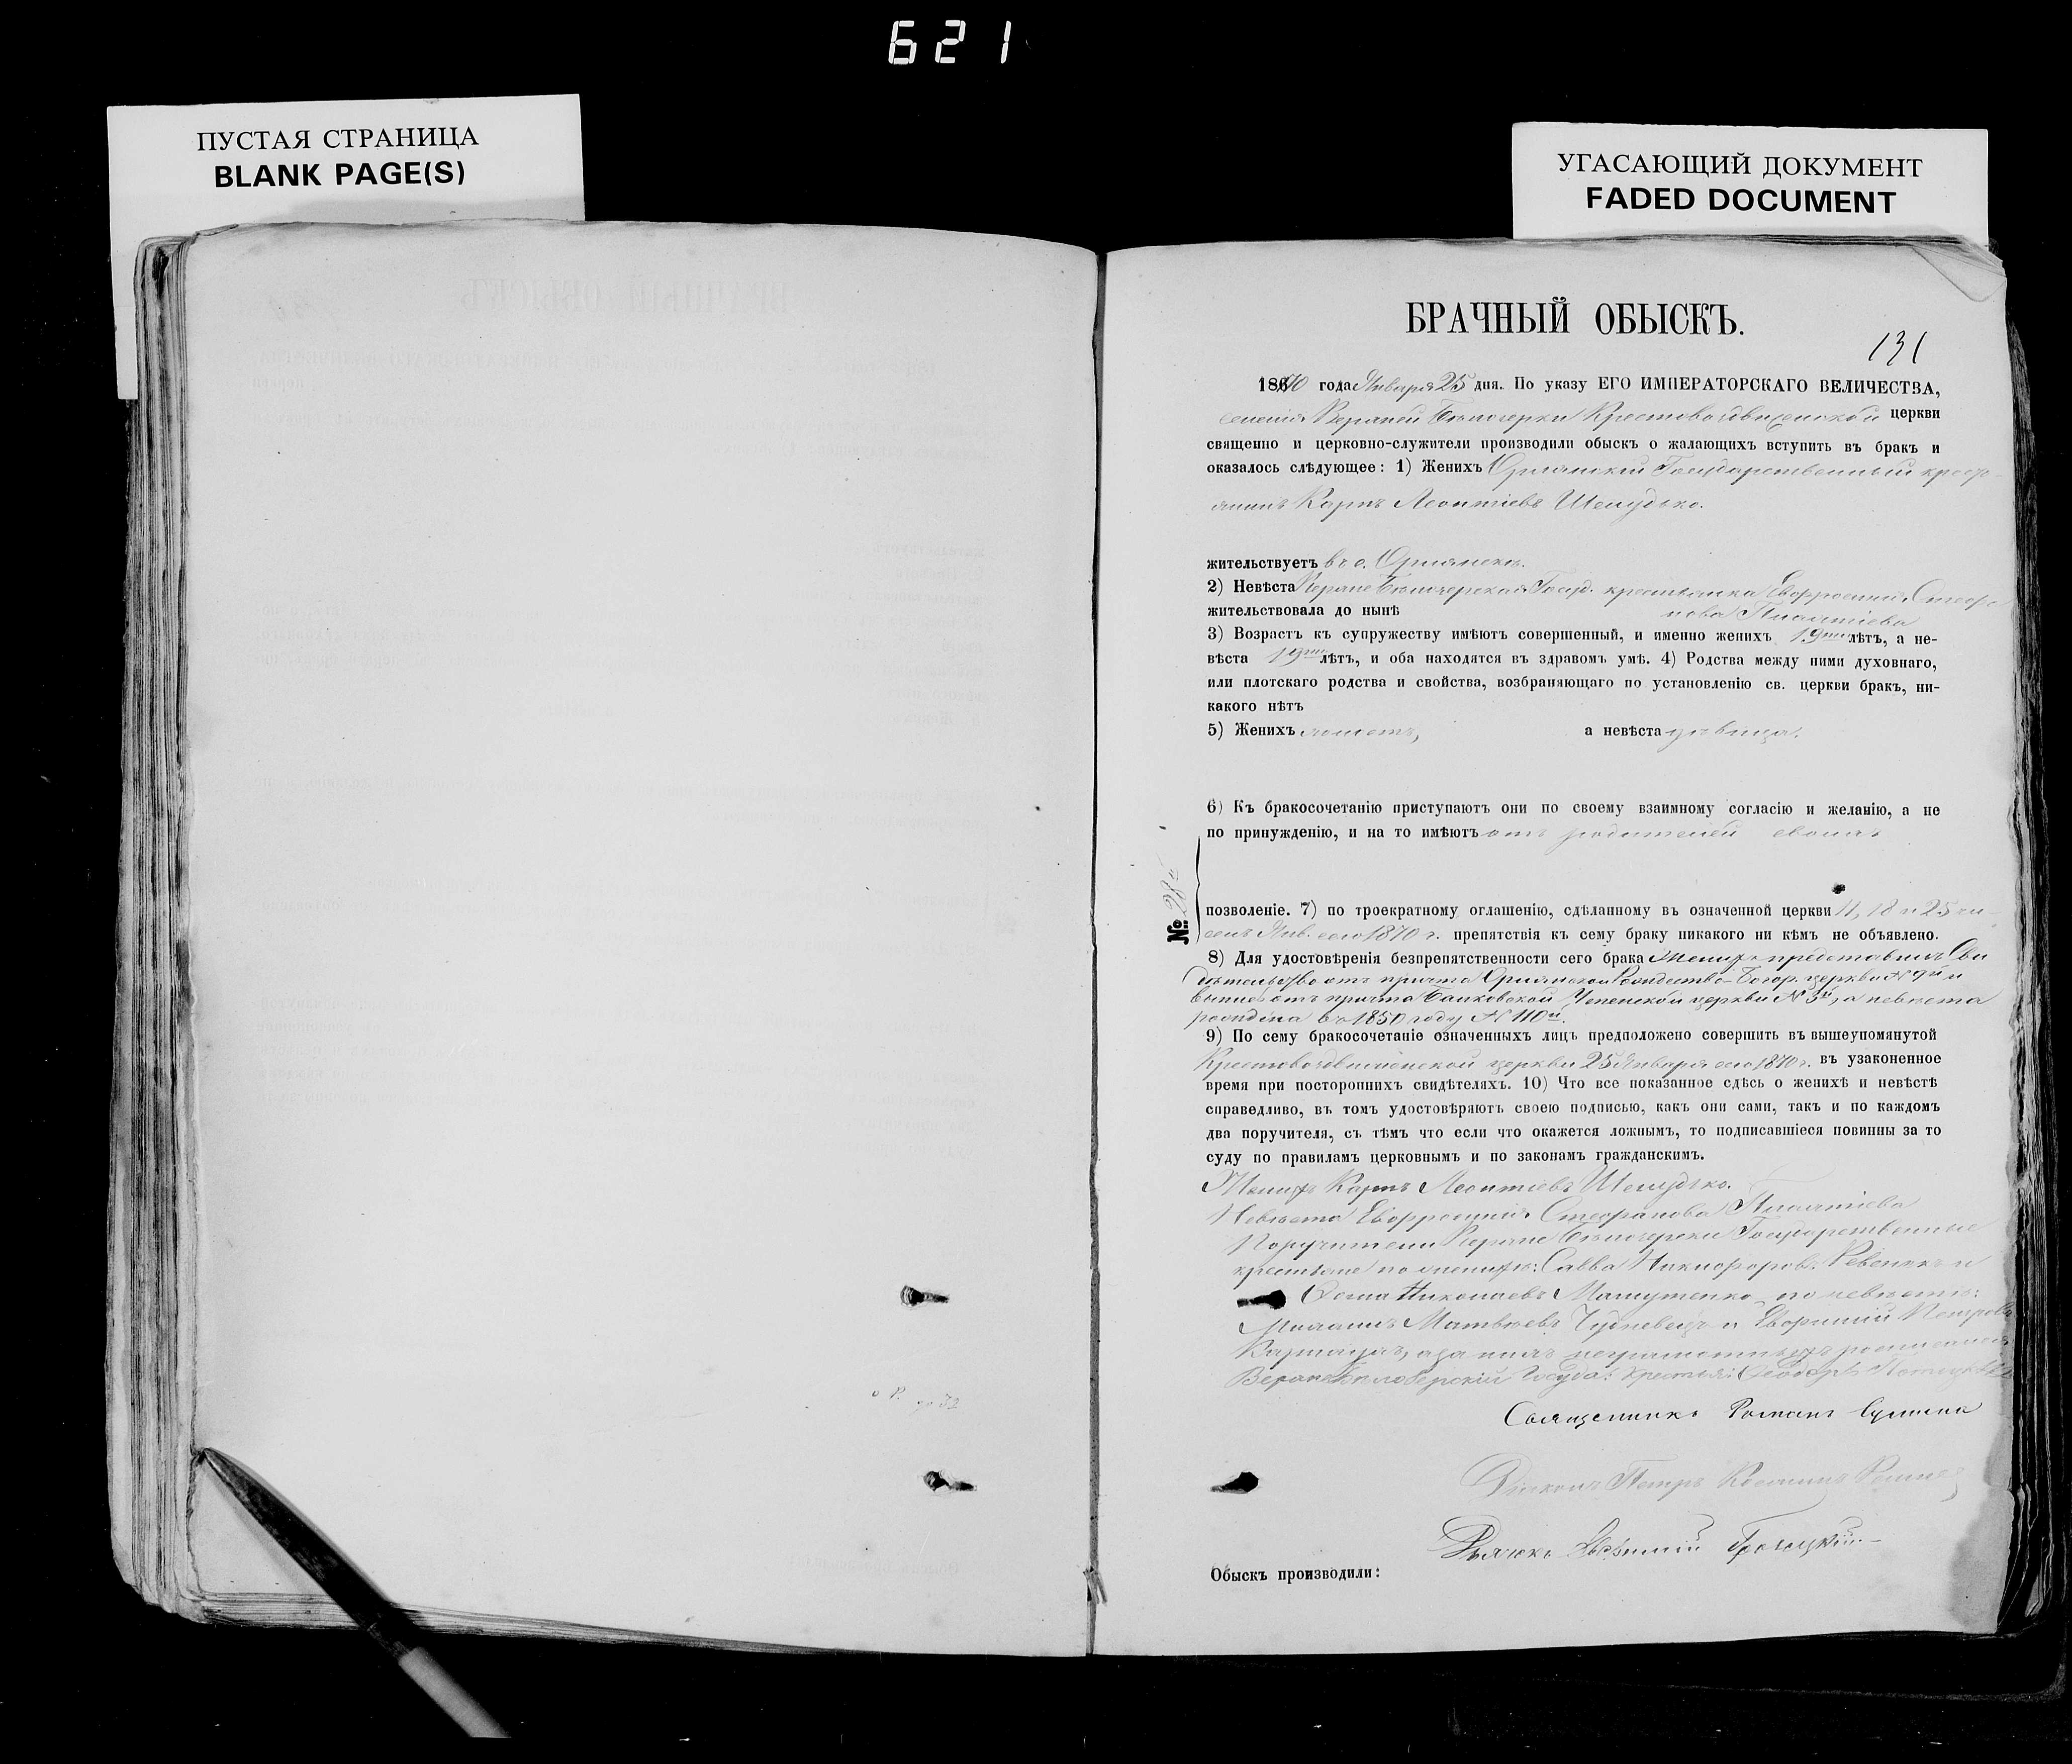 621
ПУСТАЯ СТРАНИЦА
BLANK PAGE(S)
УГАСАЮЩИЙ ДОКУМЕНТ
FADED DOCUMENT
БРАЧНЫЙ ОБЫСКЪ.
131
1870 года Января 25 дня. По указу ЕГО ИМПЕРАТОРСКАГО ВЕЛИЧЕСТВА,
селенія Верхней Бѣлозерки Крестовоздвиженской церкви
священно и церковно-служители производили обыскъ о жалающихъ вступить въ бракъ и
оказалось слѣдующее: 1) Женихъ Орлянскій Государственный крест-
янинъ Карпъ Леонтіевъ Шелудько.
жительствуетъ въ с. Орлянскъ.
2) Невѣста Верхне Бѣлозерская Госуд. крестьянка Евфросинія Стефа-
жительствовала до нынѣ нова
3) Возрастъ къ супружеству имѣютъ совершенный, и именно женихъ 19ти лѣтъ, а не-
вѣста 19ти лѣтъ, и оба находятся въ здравомъ умѣ. 4) Родства между ними духовнаго,
или плотскаго родства и свойства, возбраняющаго по установленію св. церкви бракъ, ни-
какого нѣтъ
5) Женихъ холостъ, а невѣста дѣвица.
6) Къ бракосочетанію приступаютъ они по своему взаимному согласію и желанію, а не
по принужденію, и на то имѣютъ отъ родителей своихъ
№ 28й
позволеніе. 7) по троекратному оглашенію, сдѣланному въ означенной церкви 11, 18 и 25 чи-
селъ Янв. сего 1870 г. препятствія къ сему браку никакого ни кѣмъ не объявлено.
8) Для удостовѣренія безпрепятственности сего брака Женихъ представилъ Сви
дѣтельство отъ причта Орлянской Рождество-Богор. церкви № 9й и
отъ причта Успенской церкви № 3й, а невѣста
рождена въ 1850 году № 110й.
9) По сему бракосочетаніе означенныхъ лицъ предположено совершить въ вышеупомянутой
Крестовоздвиженской церкви 25 Января сего 1870 г. въ узаконенное
время при постороннихъ свидѣтеляхъ. 10) Что все показанное сдѣсь о женихѣ и невѣстѣ
справедливо, въ томъ удостовѣряютъ своею подписью, какъ они сами, такъ и по каждомъ
два поручителя, съ тѣмъ что если что окажется ложнымъ, то подписавшіеся повинны за то
суду по правиламъ церковнымъ и по законамъ гражданскимъ.
Женихъ Карпъ Леонтіевъ Шелудько.
Невѣста Евфросинія Стефанова
Поручители Верхне Бѣлозерски Государственные
крестьяне по женихѣ: Савва Никифоровъ и
Николаевъ по невѣстѣ:
Матвѣевъ и Петровъ
а за нихъ неграмотныхъ росписался
Верхне Бѣлозерскій Госуда: крестья: Ѳеодоръ
Священникъ Романъ
Діаконъ Петръ
Дьячокъ
Обыскъ производили: